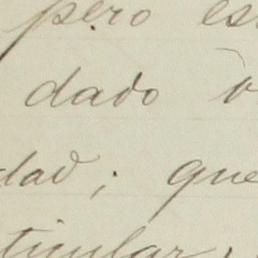 pero es
dado o
dad; que
ticular,